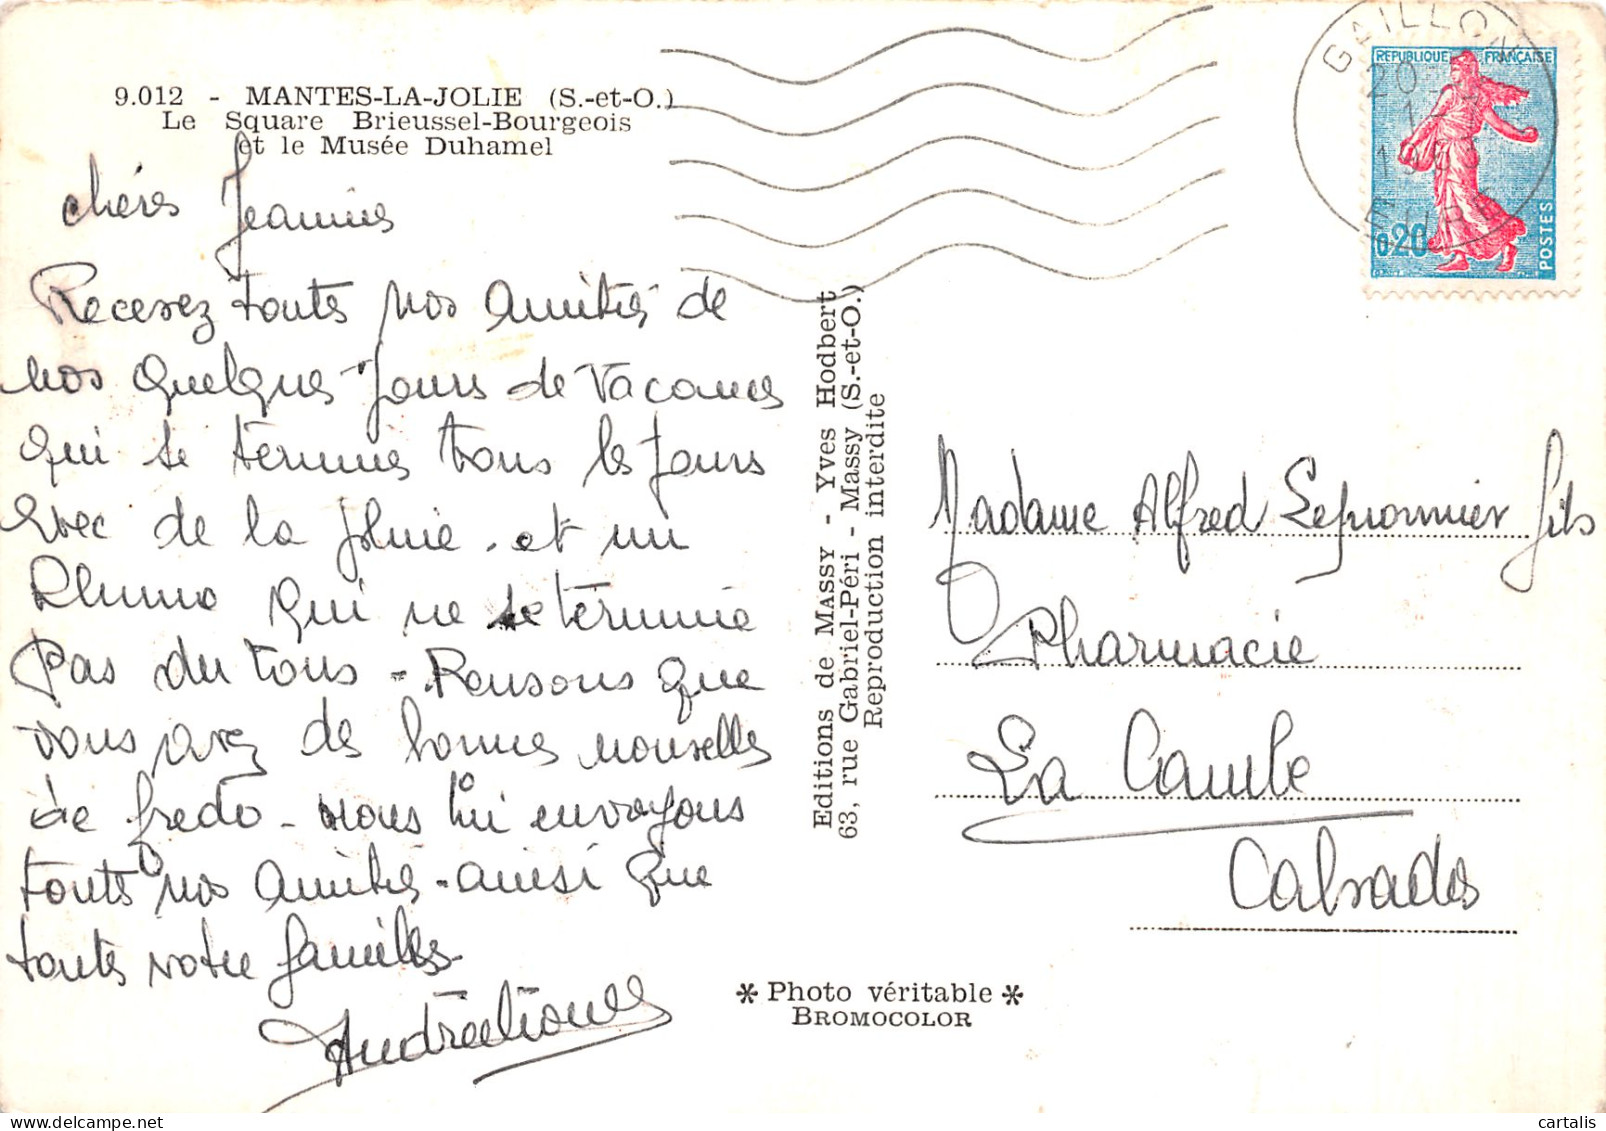 9.012 - MANTES-LA-JOLIE (S.-et-O.)
Le Square Brieussel-Bourgeois
et le Musée Duhamel
chéres Jeannine
Recevez toute nos amitiés de
nos quelques jours de vacances
qui se termine tous les jours
avec de la pluie. et un
Rhume qui ne se termine
Pas du tous - Pensons que
vous avez de bonnes nouvelles
de fredo - nous lui envoyons
toute nos amitiés - ainsi que
toute votre familles
GAILLON
20
EURE
REPUBLIQUE FRANÇAISE
0,20
POSTES
Editions de MASSY - Yves Hodbert
63, rue Gabriel-Péri - Massy (S.-et-O.)
Reproduction interdite
Madame Alfred fils
Pharmacie
La Cambe
Calvados
* Photo véritable *
BROMOCOLOR
cartalis